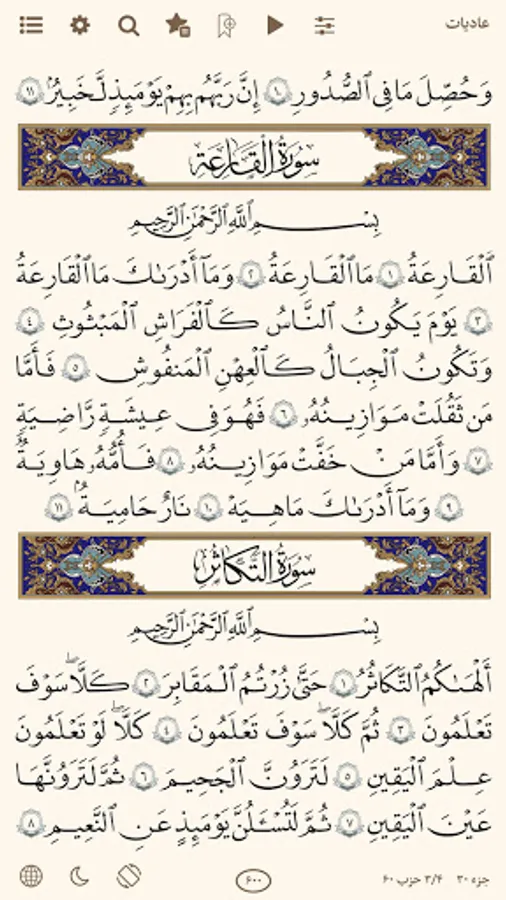 عادیات
وَحُصِّلَ مَا فِى ٱلصُّدُورِ ۝١٠ إِنَّ رَبَّهُم بِهِمْ يَوْمَئِذٍ لَّخَبِيرٌۢ ۝١١
سُورَةُ الْقَارِعَة
بِسْمِ ٱللَّهِ ٱلرَّحْمَٰنِ ٱلرَّحِيمِ
ٱلْقَارِعَةُ ۝١ مَا ٱلْقَارِعَةُ ۝٢ وَمَآ أَدْرَىٰكَ مَا ٱلْقَارِعَةُ
۝٣ يَوْمَ يَكُونُ ٱلنَّاسُ كَٱلْفَرَاشِ ٱلْمَبْثُوثِ ۝٤
وَتَكُونُ ٱلْجِبَالُ كَٱلْعِهْنِ ٱلْمَنفُوشِ ۝٥ فَأَمَّا
مَن ثَقُلَتْ مَوَٰزِينُهُۥ ۝٦ فَهُوَ فِى عِيشَةٍ رَّاضِيَةٍ
۝٧ وَأَمَّا مَنْ خَفَّتْ مَوَٰزِينُهُۥ ۝٨ فَأُمُّهُۥ هَاوِيَةٌ
۝٩ وَمَآ أَدْرَىٰكَ مَا هِيَهْ ۝١٠ نَارٌ حَامِيَةٌۢ ۝١١
سُورَةُ التَّكَاثُرِ
بِسْمِ ٱللَّهِ ٱلرَّحْمَٰنِ ٱلرَّحِيمِ
أَلْهَىٰكُمُ ٱلتَّكَاثُرُ ۝١ حَتَّىٰ زُرْتُمُ ٱلْمَقَابِرَ ۝٢ كَلَّا سَوْفَ
تَعْلَمُونَ ۝٣ ثُمَّ كَلَّا سَوْفَ تَعْلَمُونَ ۝٤ كَلَّا لَوْ تَعْلَمُونَ
عِلْمَ ٱلْيَقِينِ ۝٥ لَتَرَوُنَّ ٱلْجَحِيمَ ۝٦ ثُمَّ لَتَرَوُنَّهَا
عَيْنَ ٱلْيَقِينِ ۝٧ ثُمَّ لَتُسْـَٔلُنَّ يَوْمَئِذٍ عَنِ ٱلنَّعِيمِ ۝٨
جزء ۳۰ ۳/۴ حزب ۶۰
۶۰۰